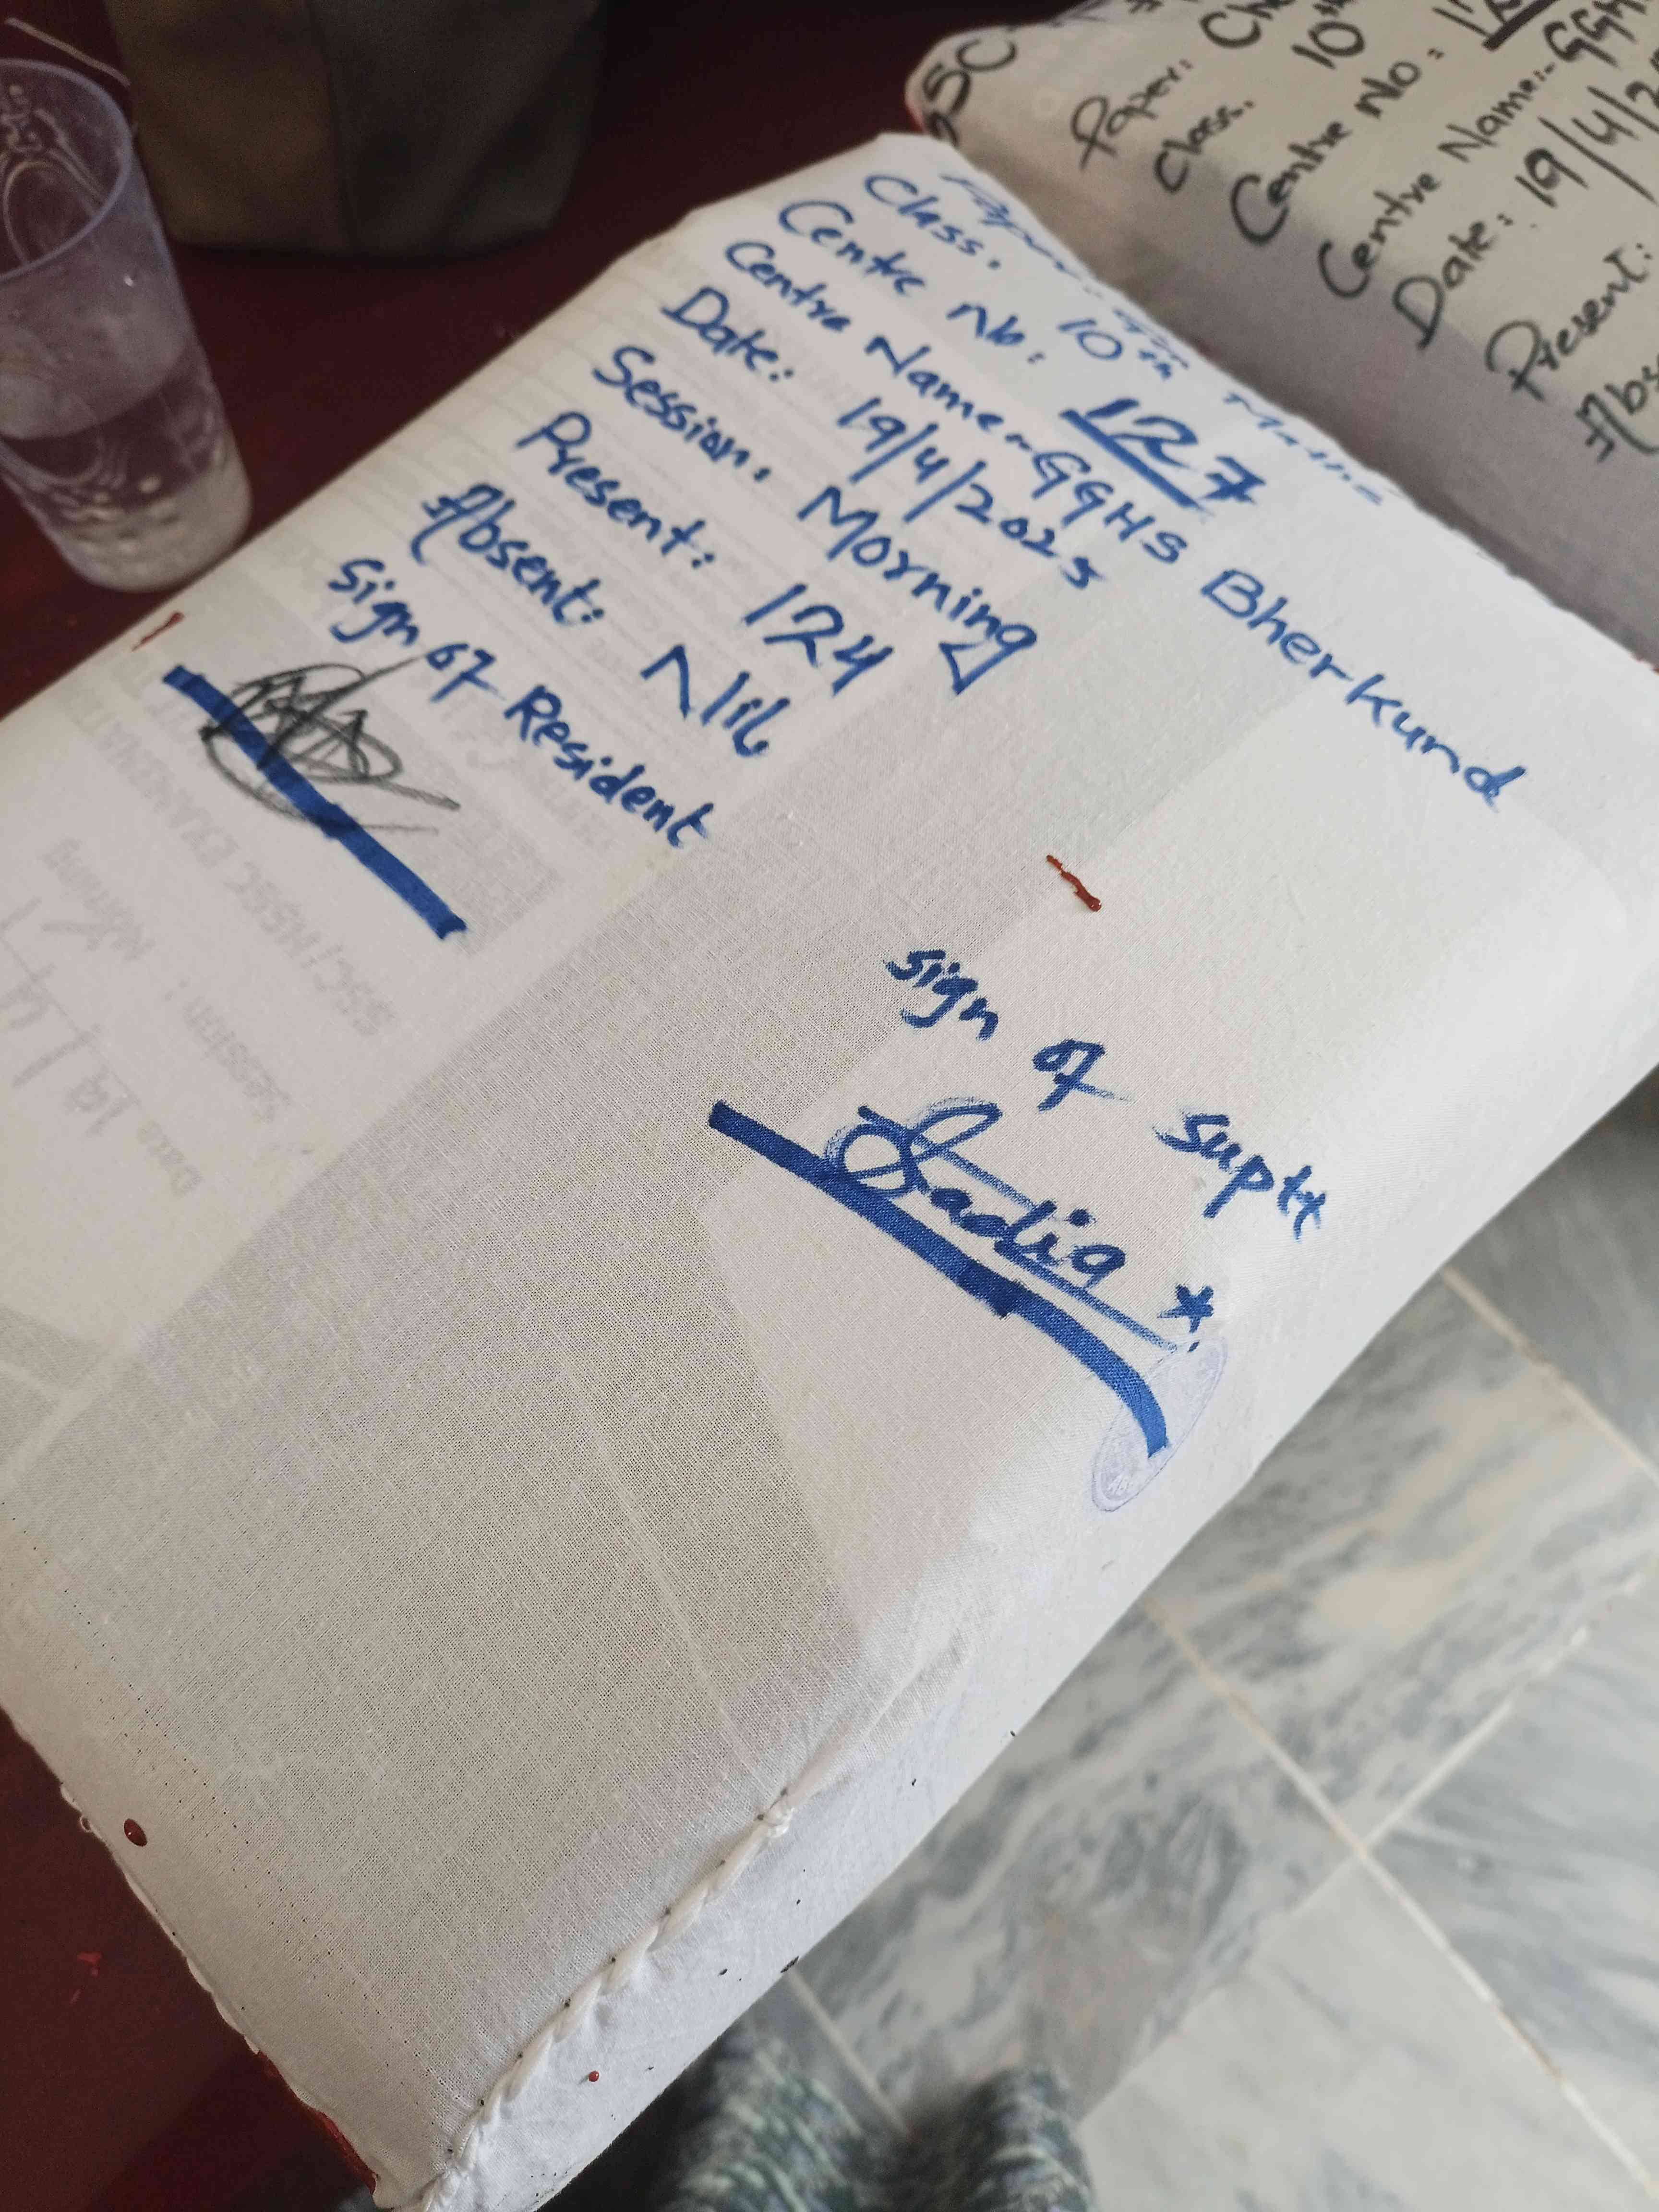 Class. 10th
Centre No: 127
Centre Name~ GGHS Bherkund
Date: 19/4/2025
Session. Morning
Present: 124
Absent: Nil
Sign of Resident
Sign of Suptt
Sadiq
Paper:
Class. 10th
Centre No:
Centre Name:-
Date: 19/4/
Present: